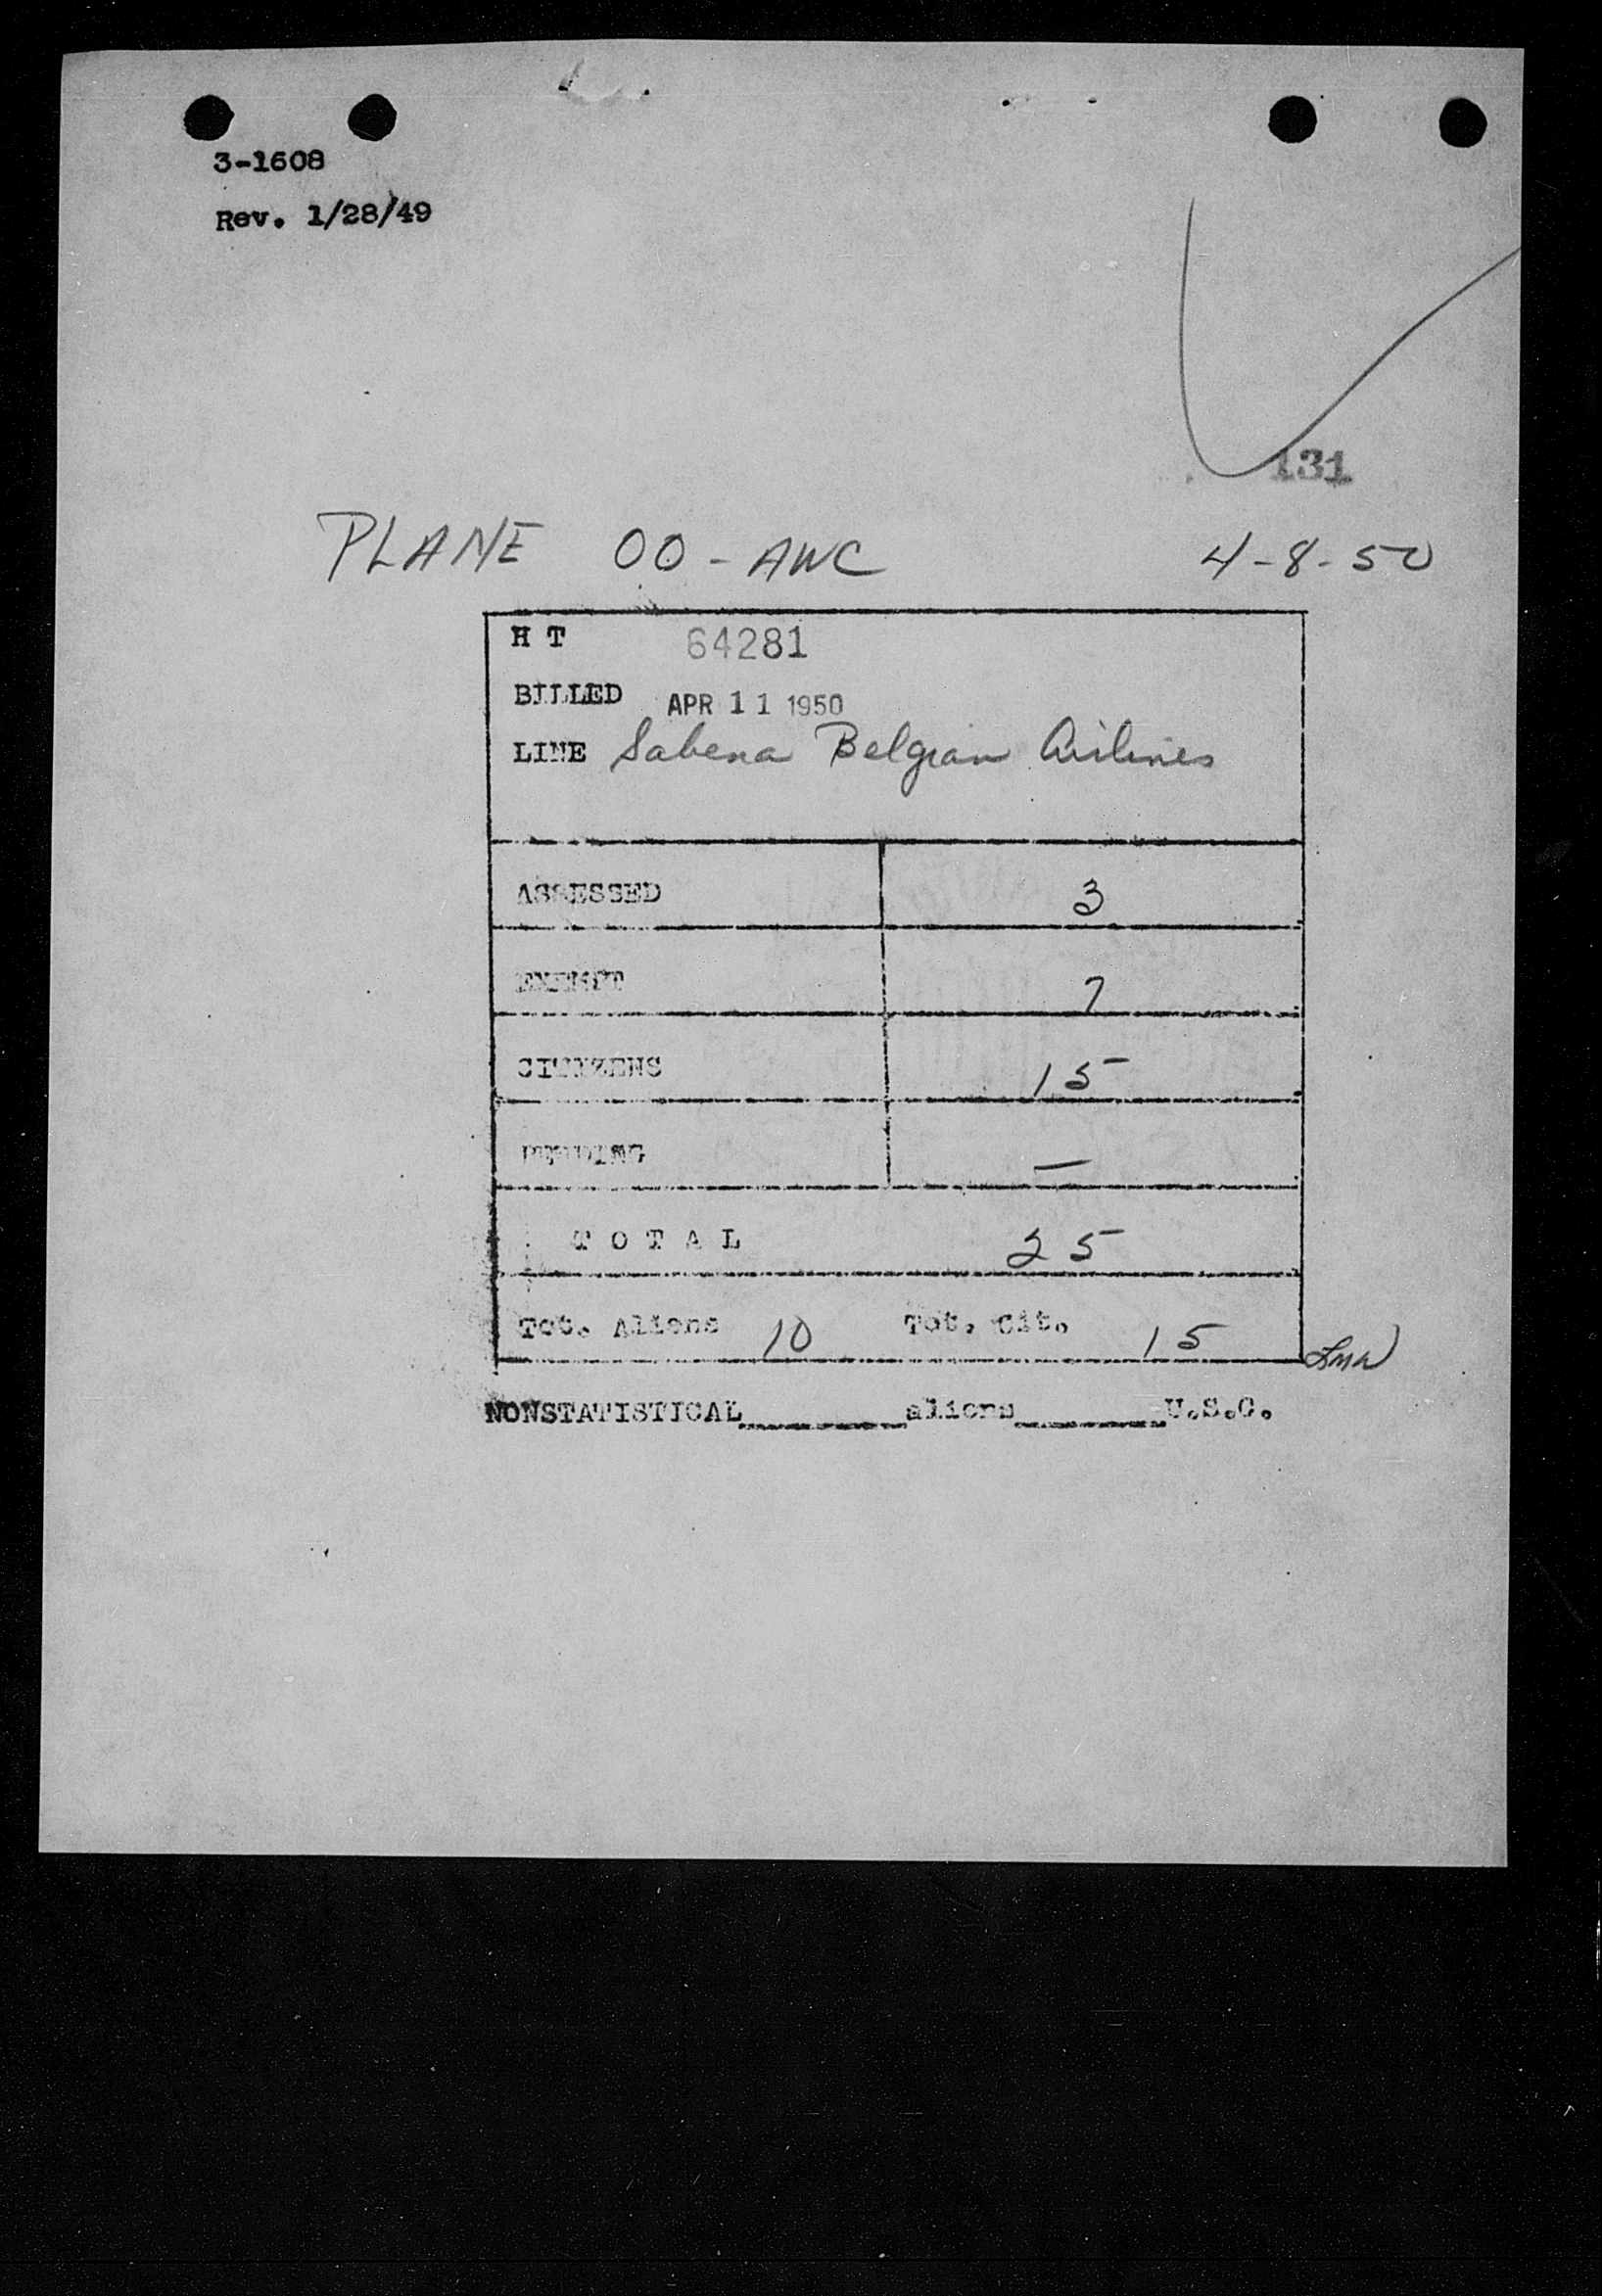 3-1608
Rev. 1/28/49
131
PLANE OO-AWC 4-8-50
H T 64281
BILLED APR 11 1950
LINE Sabena Belgian Airlines
ASSESSED 3
EXEMPT 7
CITIZENS 15
PENDING —
TOTAL 25
Tot. Aliens 10 Tot. Cit. 15
NONSTATISTICAL________aliens________U.S.C.